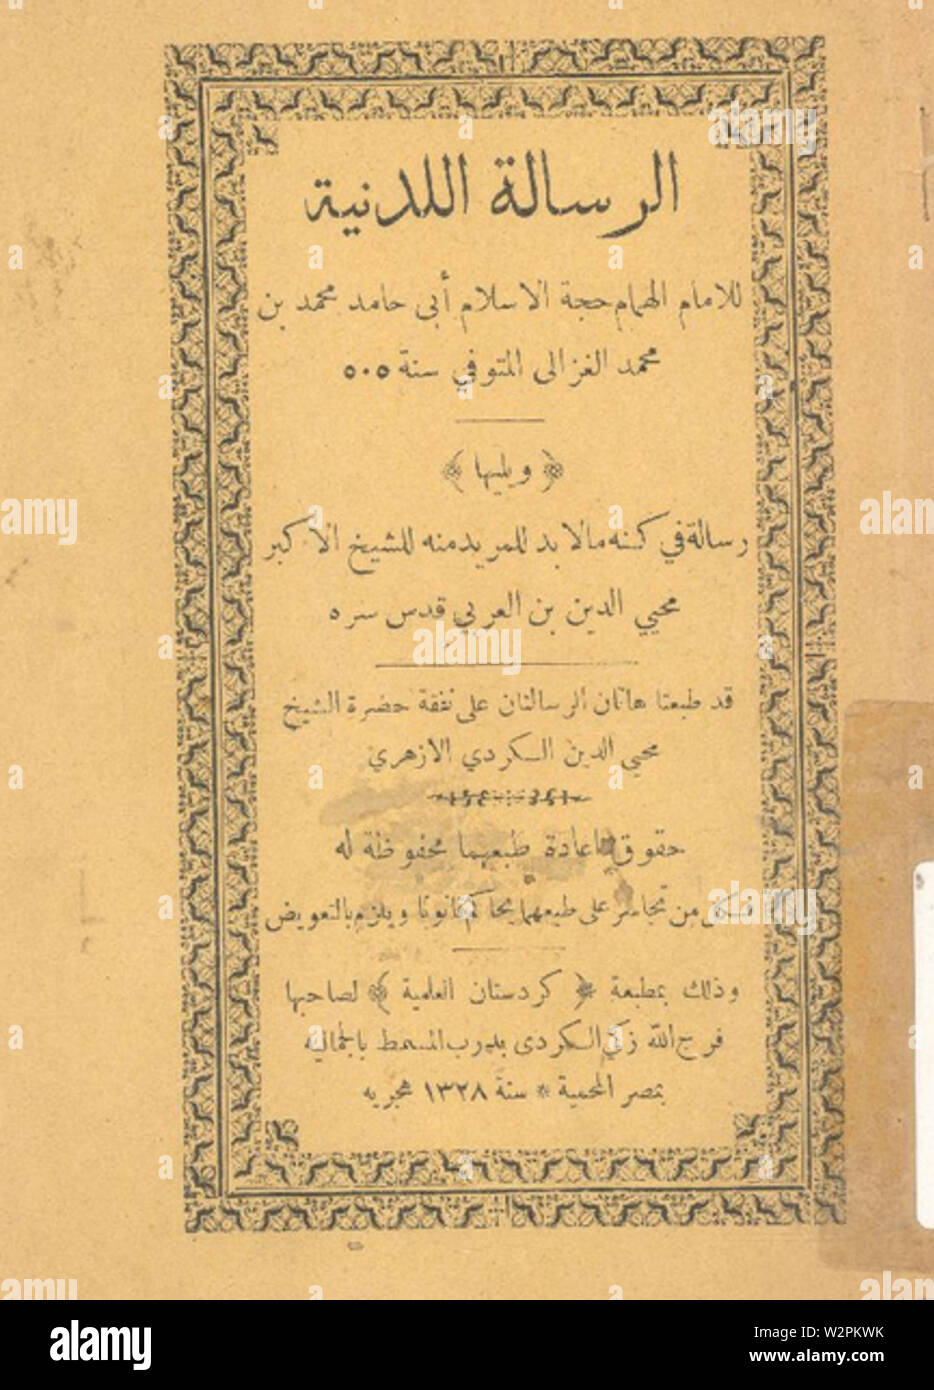 الرسالة اللدنية
للامام الهمام حجة الاسلام أبى حامد محمد بن
محمد الغزالى المتوفي سنة ٥٠٥
﴿ ويليها ﴾
رسالة في كنه مالابد للمريد منه للشيخ الاكبر
محيي الدين بن العربي قدس سره
قد طبعتا هاتان الرسالتان على نفقة حضرة الشيخ
محيي الدين الكردي الازهري
حقوق اعادة طبعهما محفوظة له
فكل من تجاسر على طبعهما يحاكم قانونا ويلزم بالتعويض
وذلك بمطبعة ﴿ كردستان العلمية ﴾ لصاحبها
فرج الله زكي الكردى بدرب المسمط بالجمالية
بمصر المحمية * سنة ١٣٢٨ هجريه
alamy
alamy
alamy
Image ID: W2PKWK
www.alamy.com